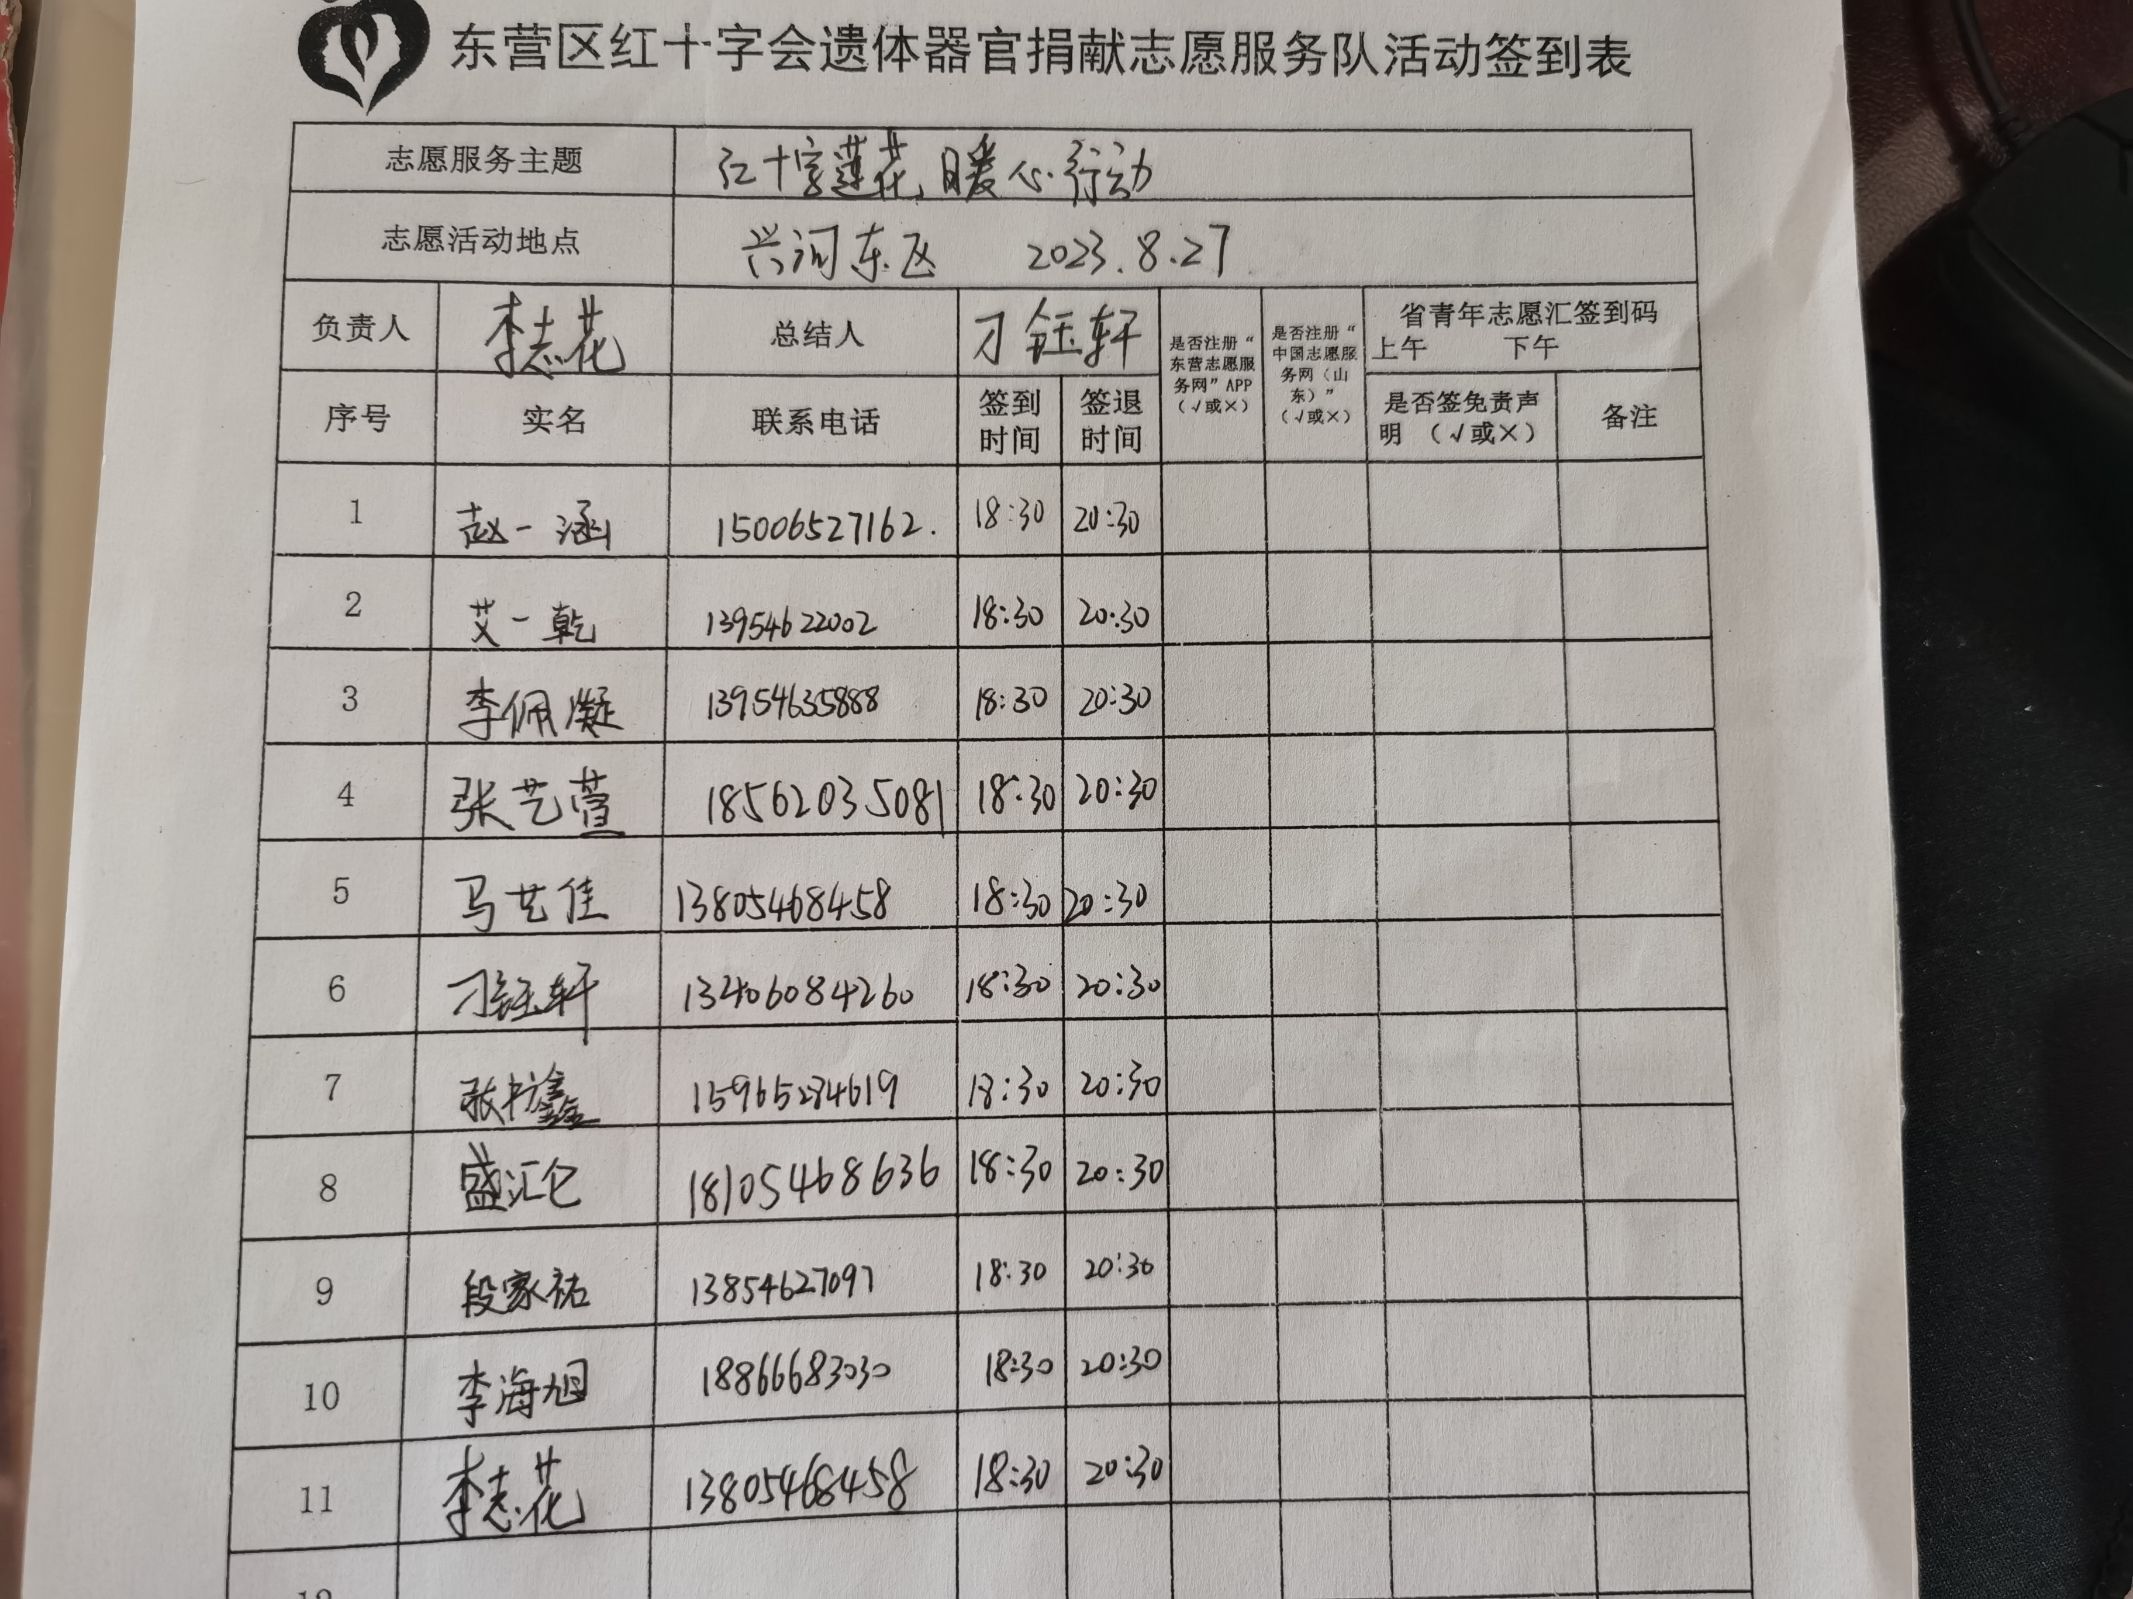 东营区红十字会遗体器官捐献志愿服务队活动签到表
志愿服务主题 红十字莲花 暖心行动
志愿活动地点 兴河东区 2023.8.27
负责人 李志花 总结人 刁钰轩
是否注册“东营志愿服务网”APP（√或×）
是否注册“中国志愿服务网（山东）”（√或×）
省青年志愿汇签到码
上午 下午
序号 实名 联系电话 签到时间 签退时间 是否签免责声明（√或×） 备注
1 赵一涵 15006527162. 18:30 20:30
2 艾一乾 13954622002 18:30 20:30
3 李佩凝 13954635888 18:30 20:30
4 张艺萱 18562035081 18:30 20:30
5 马艺佳 13805468458 18:30 20:30
6 刁钰轩 13406084260 18:30 20:30
7 张 鑫 15965284619 18:30 20:30
8 盛汇仑 18105468636 18:30 20:30
9 段家祐 13854627097 18:30 20:30
10 李海旭 18866683030 18:30 20:30
11 李志花 13805468458 18:30 20:30